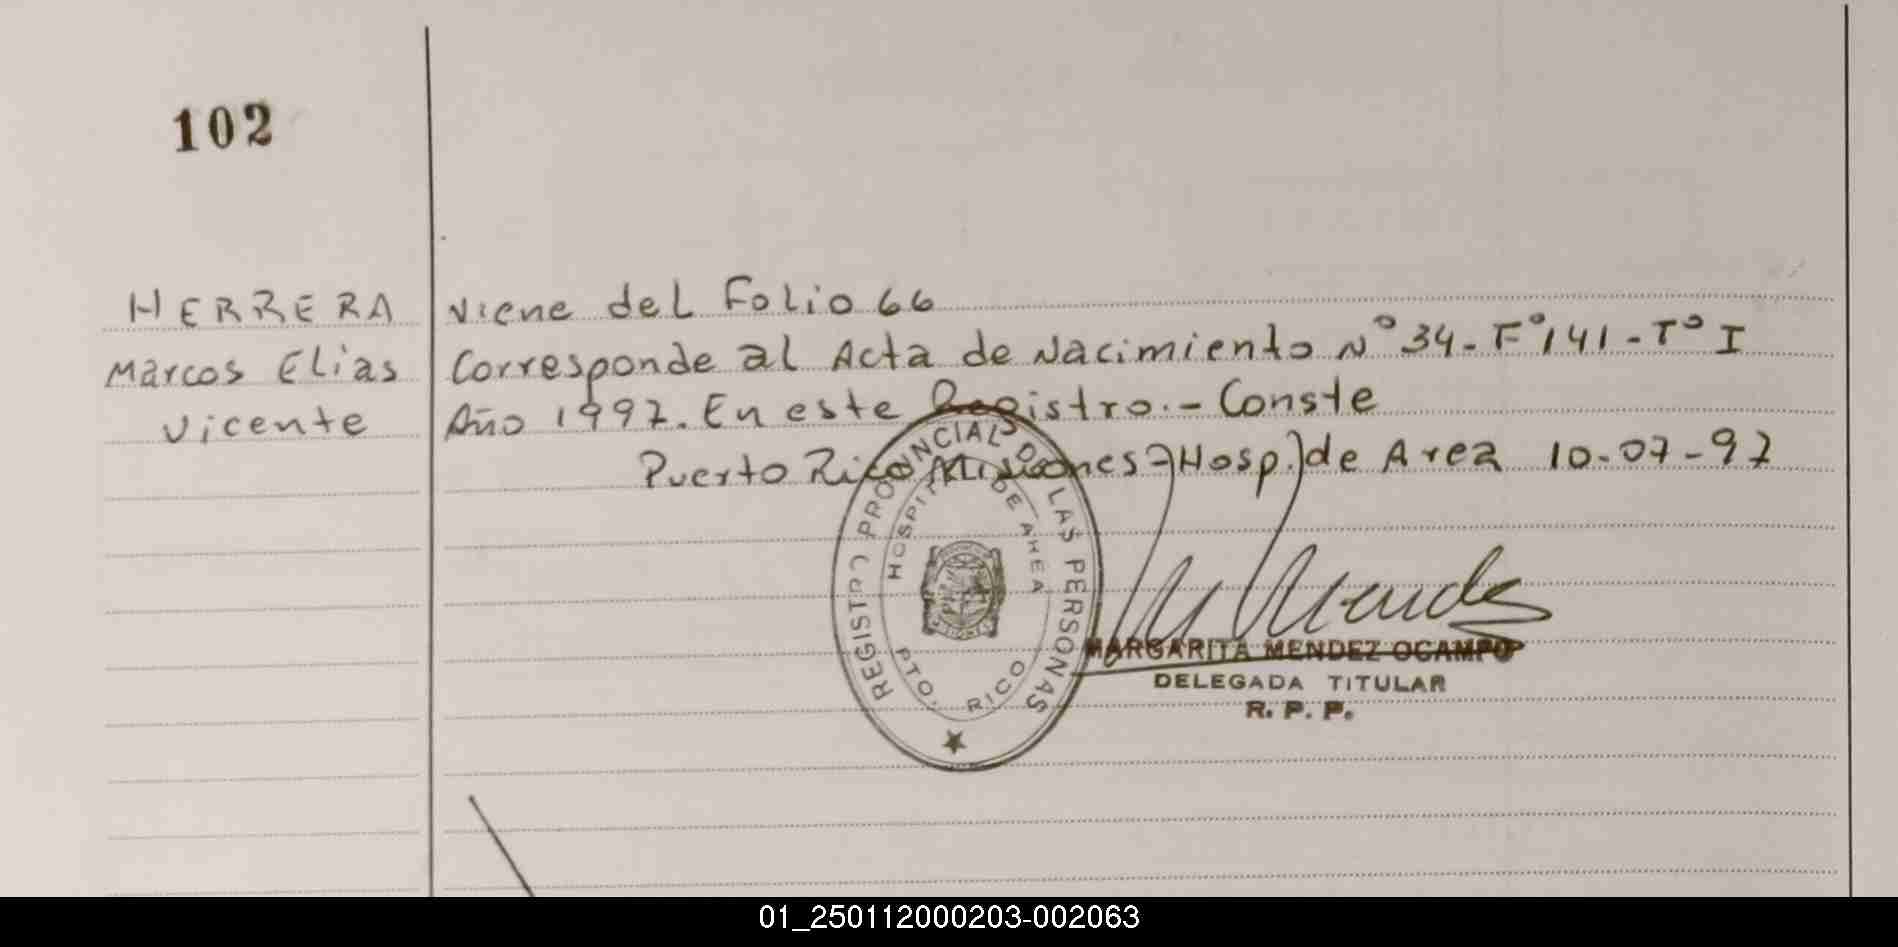 102
HERRERA
Marcos Elias
Vicente
viene del Folio 66
Corresponde al Acta de Nacimiento N° 34-F° 141-T° I
Año 1997. En este Registro.- Conste
Puerto Rico Misiones-Hosp. de Area 10-07-97
REGISTRO PROVINCIAL DE LAS PERSONAS
HOSPITAL DE AREA
PTO. RICO
MISIONES
M Mendez
MARGARITA MENDEZ OCAMPO
DELEGADA TITULAR
R. P. P.
01_250112000203-002063